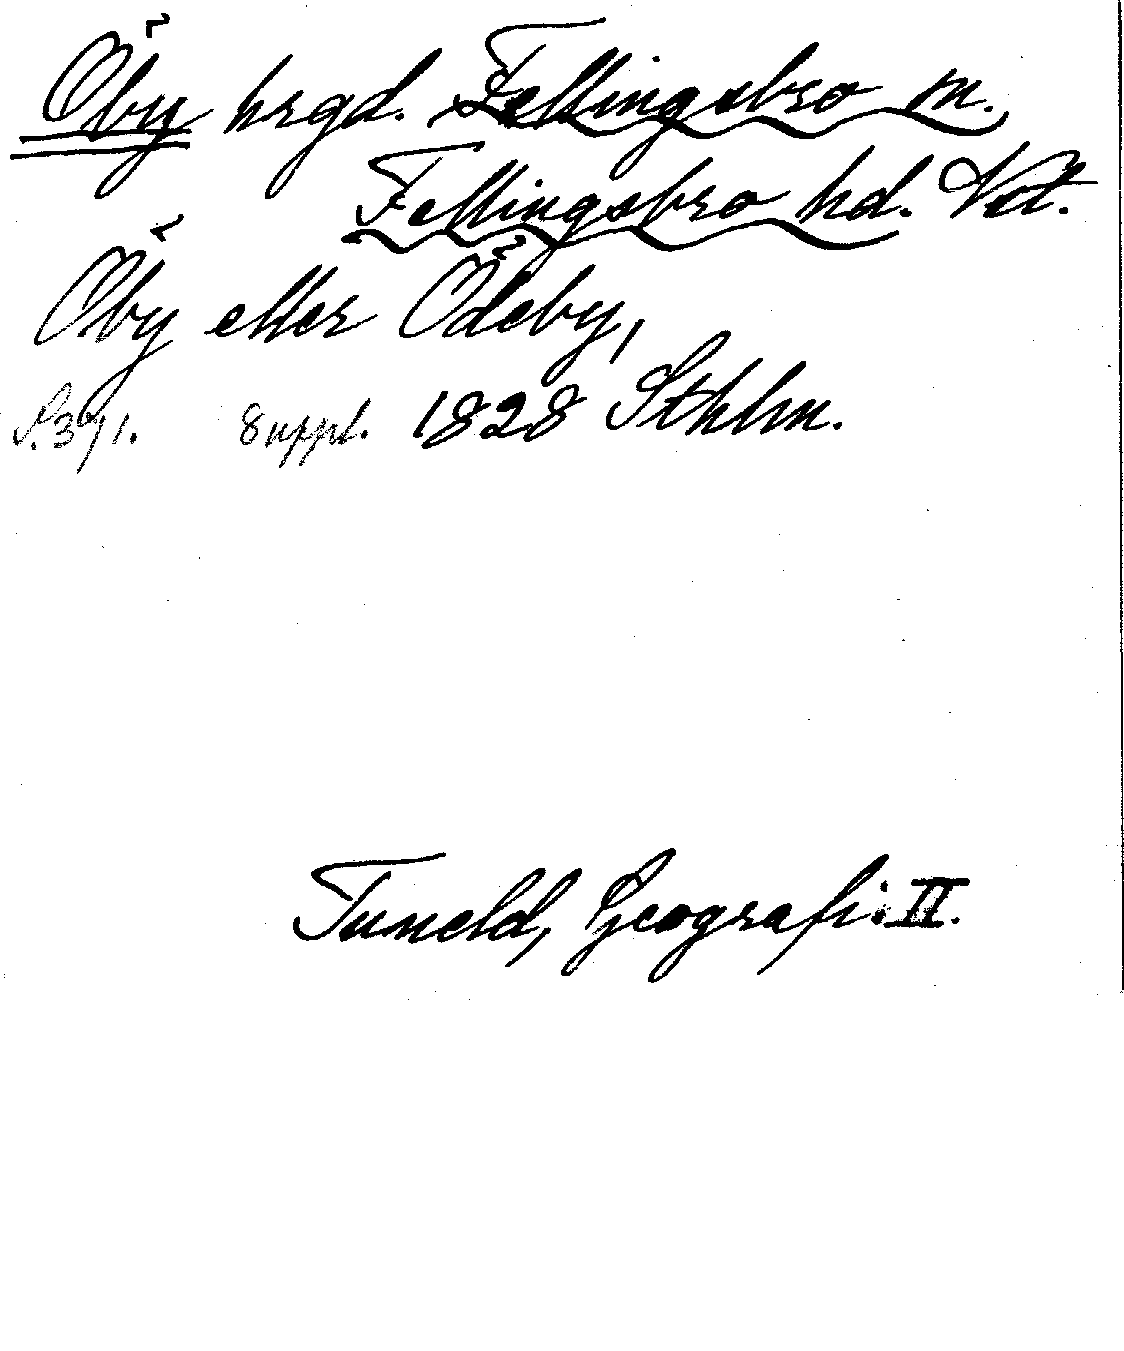 Öby hrgd. Fellingsbro sn.
Fellingsbro hd. Vstl.
Öby eller Ödeby,
S. 371. 8 uppl. 1828 Sthlm.
Tuneld, Geografi. II.